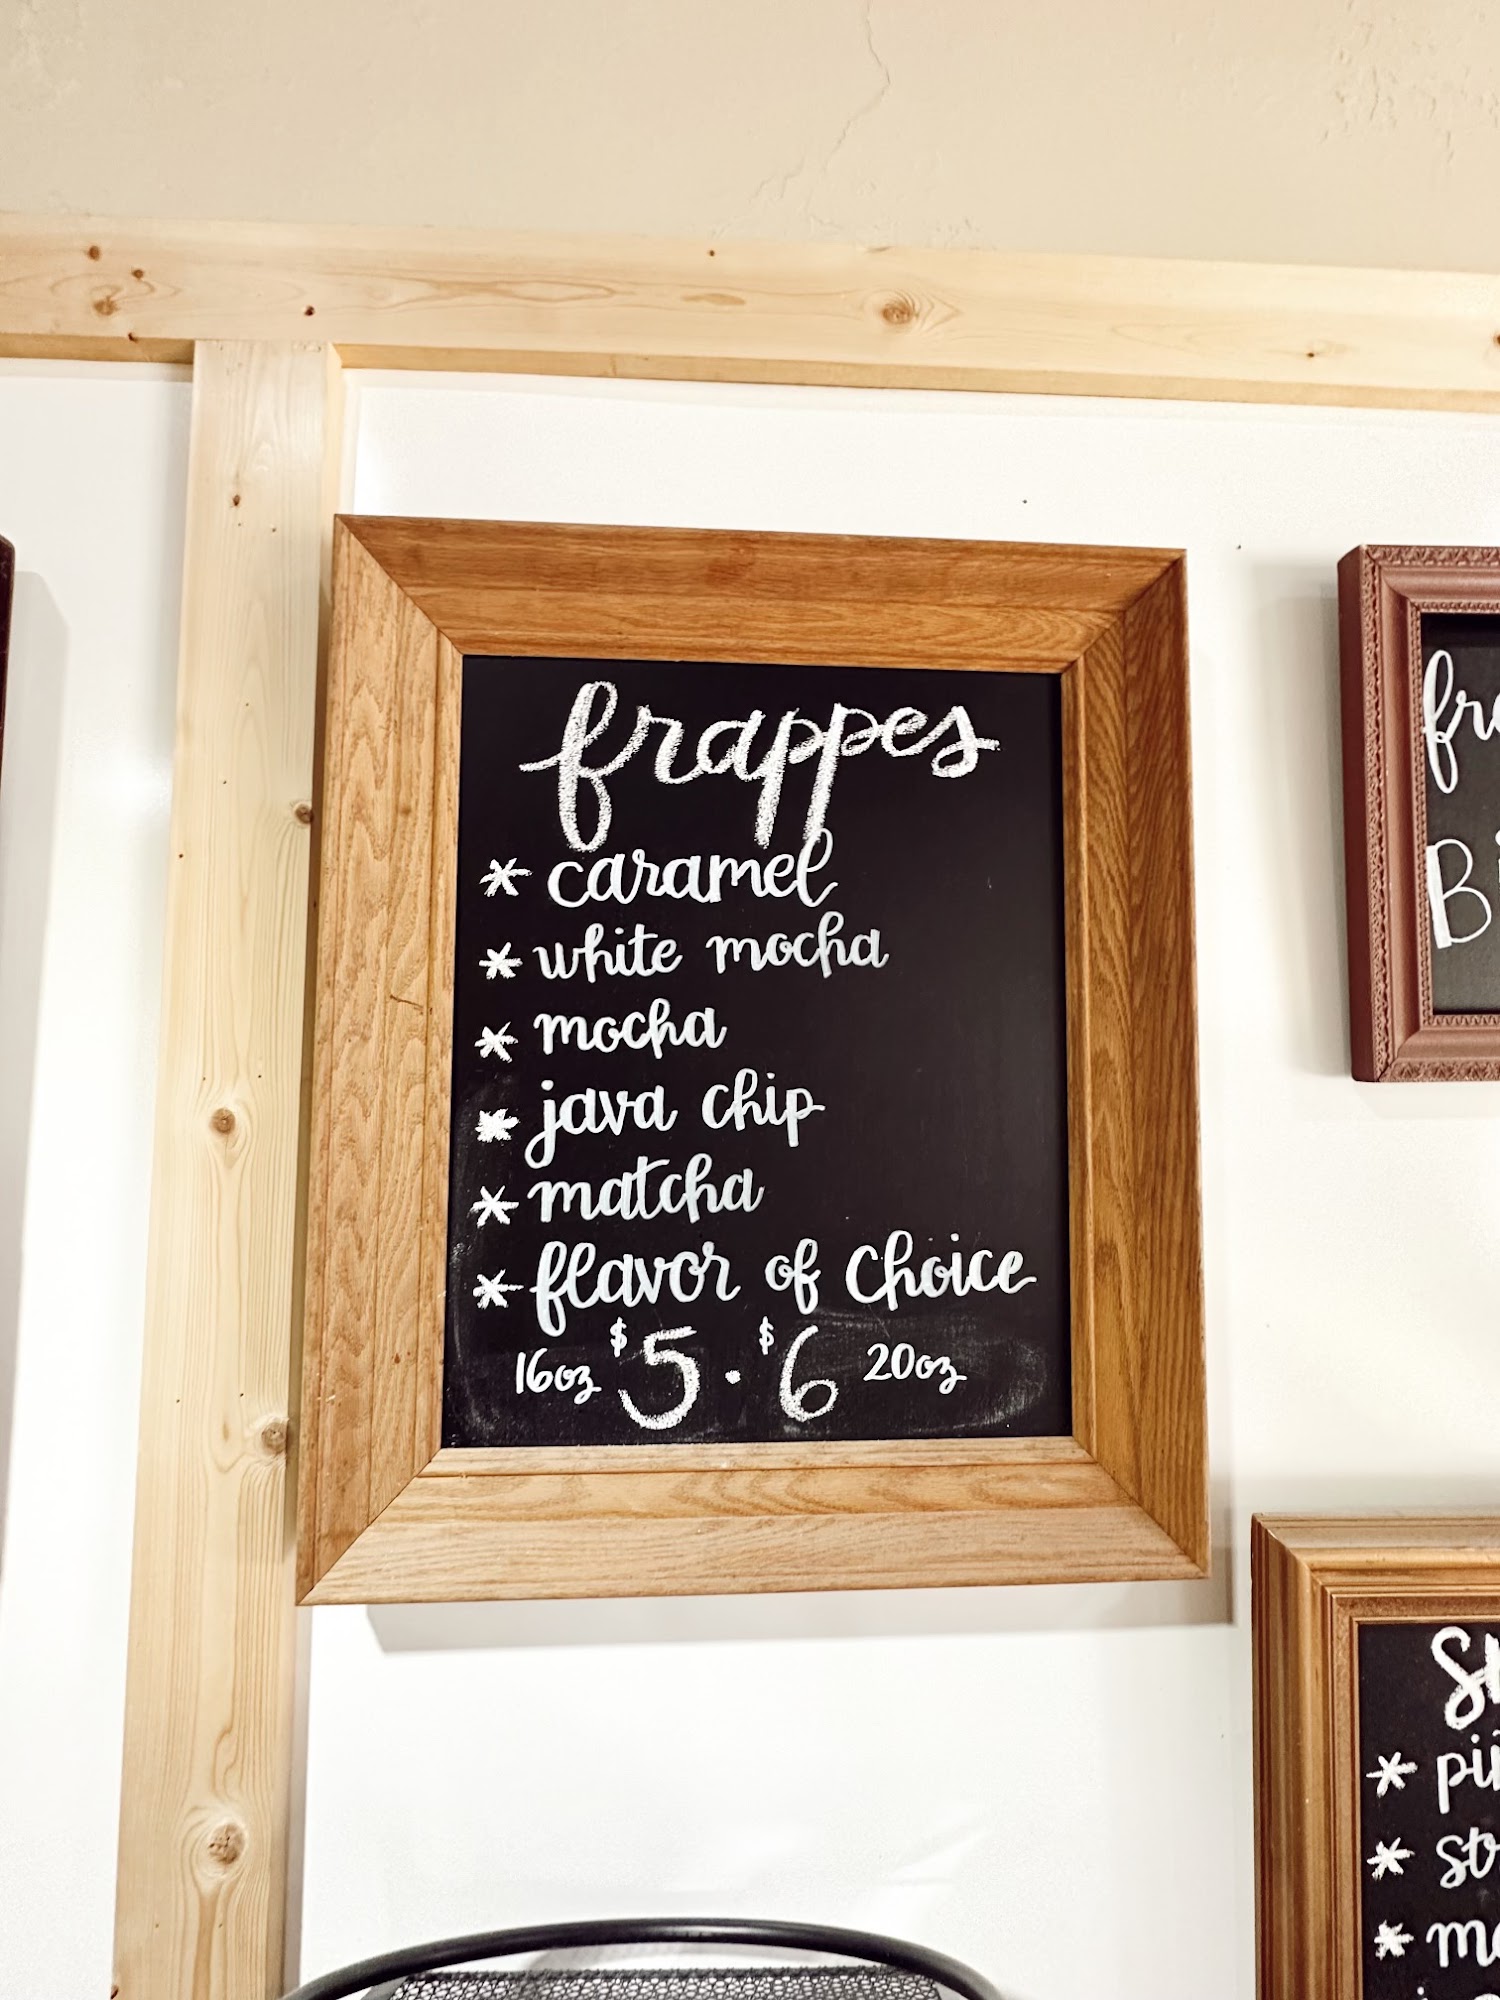 frappes
* caramel
* white mocha
* mocha
* java chip
* matcha
* flavor of choice
16oz $5 · $6 20oz